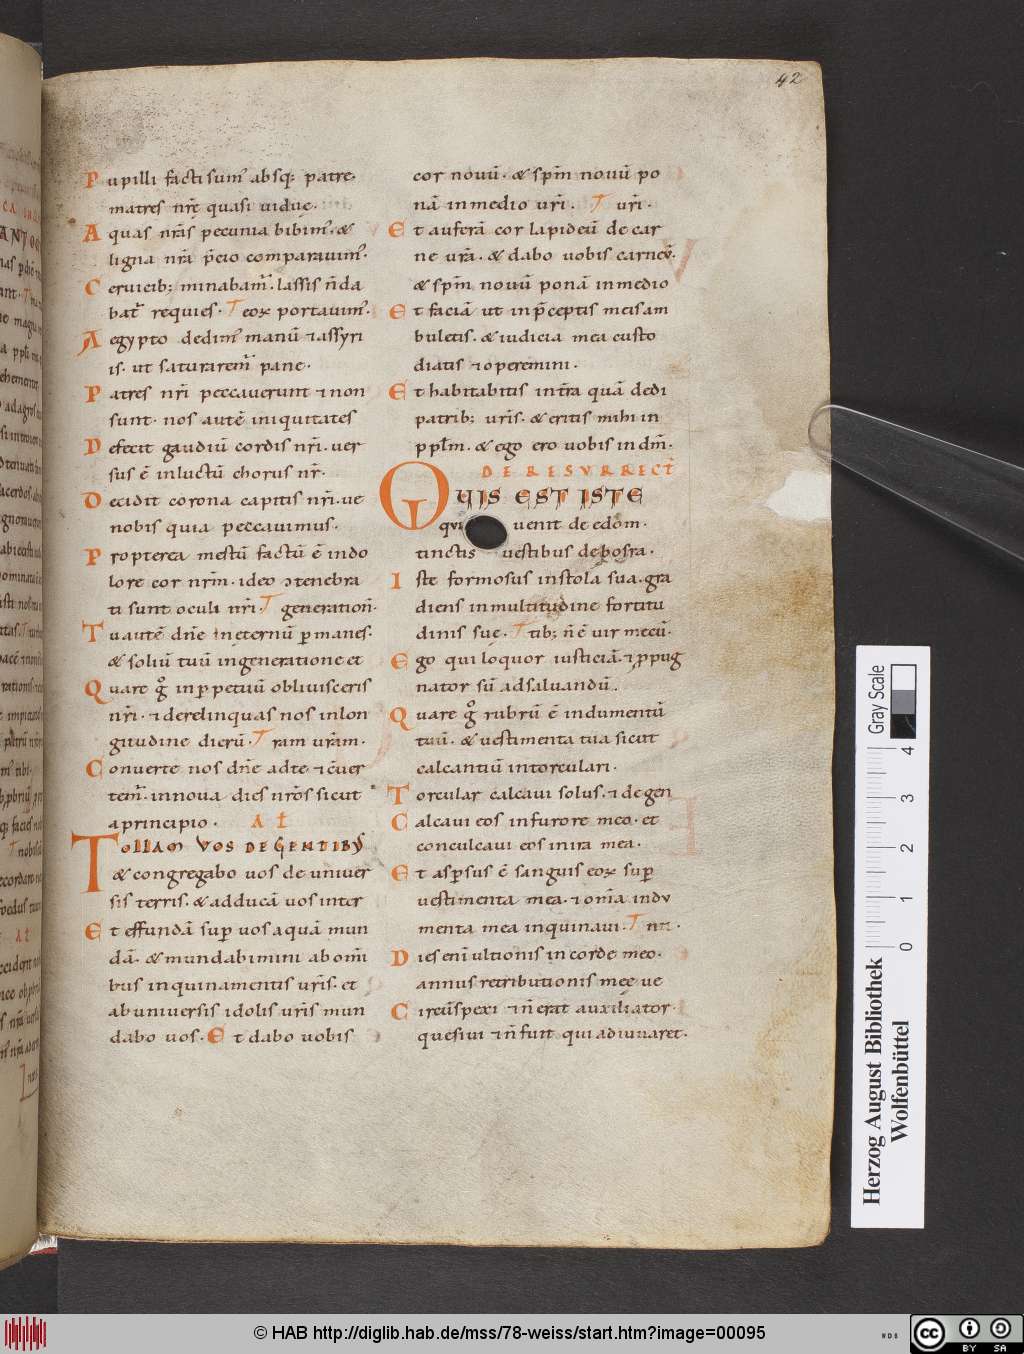 42
Pupilli facti sum᾽ absq; patre
matres nr̄e quasi uiduę.
Aquas nr̄as pecunia bibim᾽. &
ligna nr̄a p̄cio comparauim᾽.
Ceruicib; minabam᾽. lassis n̄ da
bat᾽ requies. T eoꝝ portauim᾽.
Aegypto dedim᾽ manū ⁊ assyri
is. ut saturarem᾽ pane.
Patres nr̄i peccauerunt ⁊ non
sunt. nos autē iniquitates
Defecit gaudiū cordis nr̄i. uer
sus ē in luctū chorus nr̄.
Decidit corona capitis nr̄i. ue
nobis quia peccauimus.
Propterea mestū factū ē in do
lore cor nrm̄. ideo ↄtenebra
ti sunt oculi nr̄i. T generation̄.
Tu autē dn̄e in eternū ꝑmanes.
& soliū tuū in generatione et
Quare g̊ in ꝑpetuū obliuisceris
nr̄i. ⁊ derelinquas nos in lon
gitudine dierū. T ram ur̄am.
Conuerte nos dn̄e ad te ⁊ c̄uer
tem᾽. innoua dies nr̄os sicut
a principio. AŁ
Tollam vos de gentibus
& congregabo uos de uniuer
sis terris. & adducā uos in ter
Et effundā suꝑ uos aquā mun
dā. & mundabimini ab omī
bus inquinamentis ur̄is. et
ab uniuersis idolis ur̄is mun
dabo uos. Et dabo uobis
cor nouū. & spm̄ nouū po
nā in medio ur̄i. T ur̄i.
Et auferā cor lapideū de car
ne ur̄a. & dabo uobis carneū.
& spm̄ nouū ponā in medio
Et faciā ut in p̄ceptis meis am
buletis. & iudicia mea custo
diatis ⁊ operemini.
Et habitabitis in tr̄a quā dedi
patrib; ur̄is. & eritis mihi in
pplm̄. & ego ero uobis in dm̄.
DE RESURRECT̄
QUIS EST ISTE
qui uenit de edom.
tinctis uestibus de bosra.
Iste formosus in stola sua. gra
diens in multitudine fortitu
dinis suę. T tib; n̄ ē uir mecū.
Ego qui loquor iusticiā. ⁊ ꝓpug
nator sū ad saluandū.
Quare g̊ rubrū ē indumentū
tuū. & uestimenta tua sicut
calcantiū in torculari.
Torcular calcaui solus. ⁊ de gen
Calcaui eos in furore meo. et
conculcaui eos in ira mea.
Et asꝑsus ē sanguis eoꝝ suꝑ
uestimenta mea. ⁊ om̄ia indu
menta mea inquinaui. T
Dies enī ultionis in corde meo.
annus retributionis meę ue
Circūspexi ⁊ n̄ erat auxiliator
quesiui ⁊ n̄ fuit qui adiuuaret.
Gray Scale
0 1 2 3 4
Herzog August Bibliothek
Wolfenbüttel
© HAB http://diglib.hab.de/mss/78-weiss/start.htm?image=00095
WDB
cc BY SA